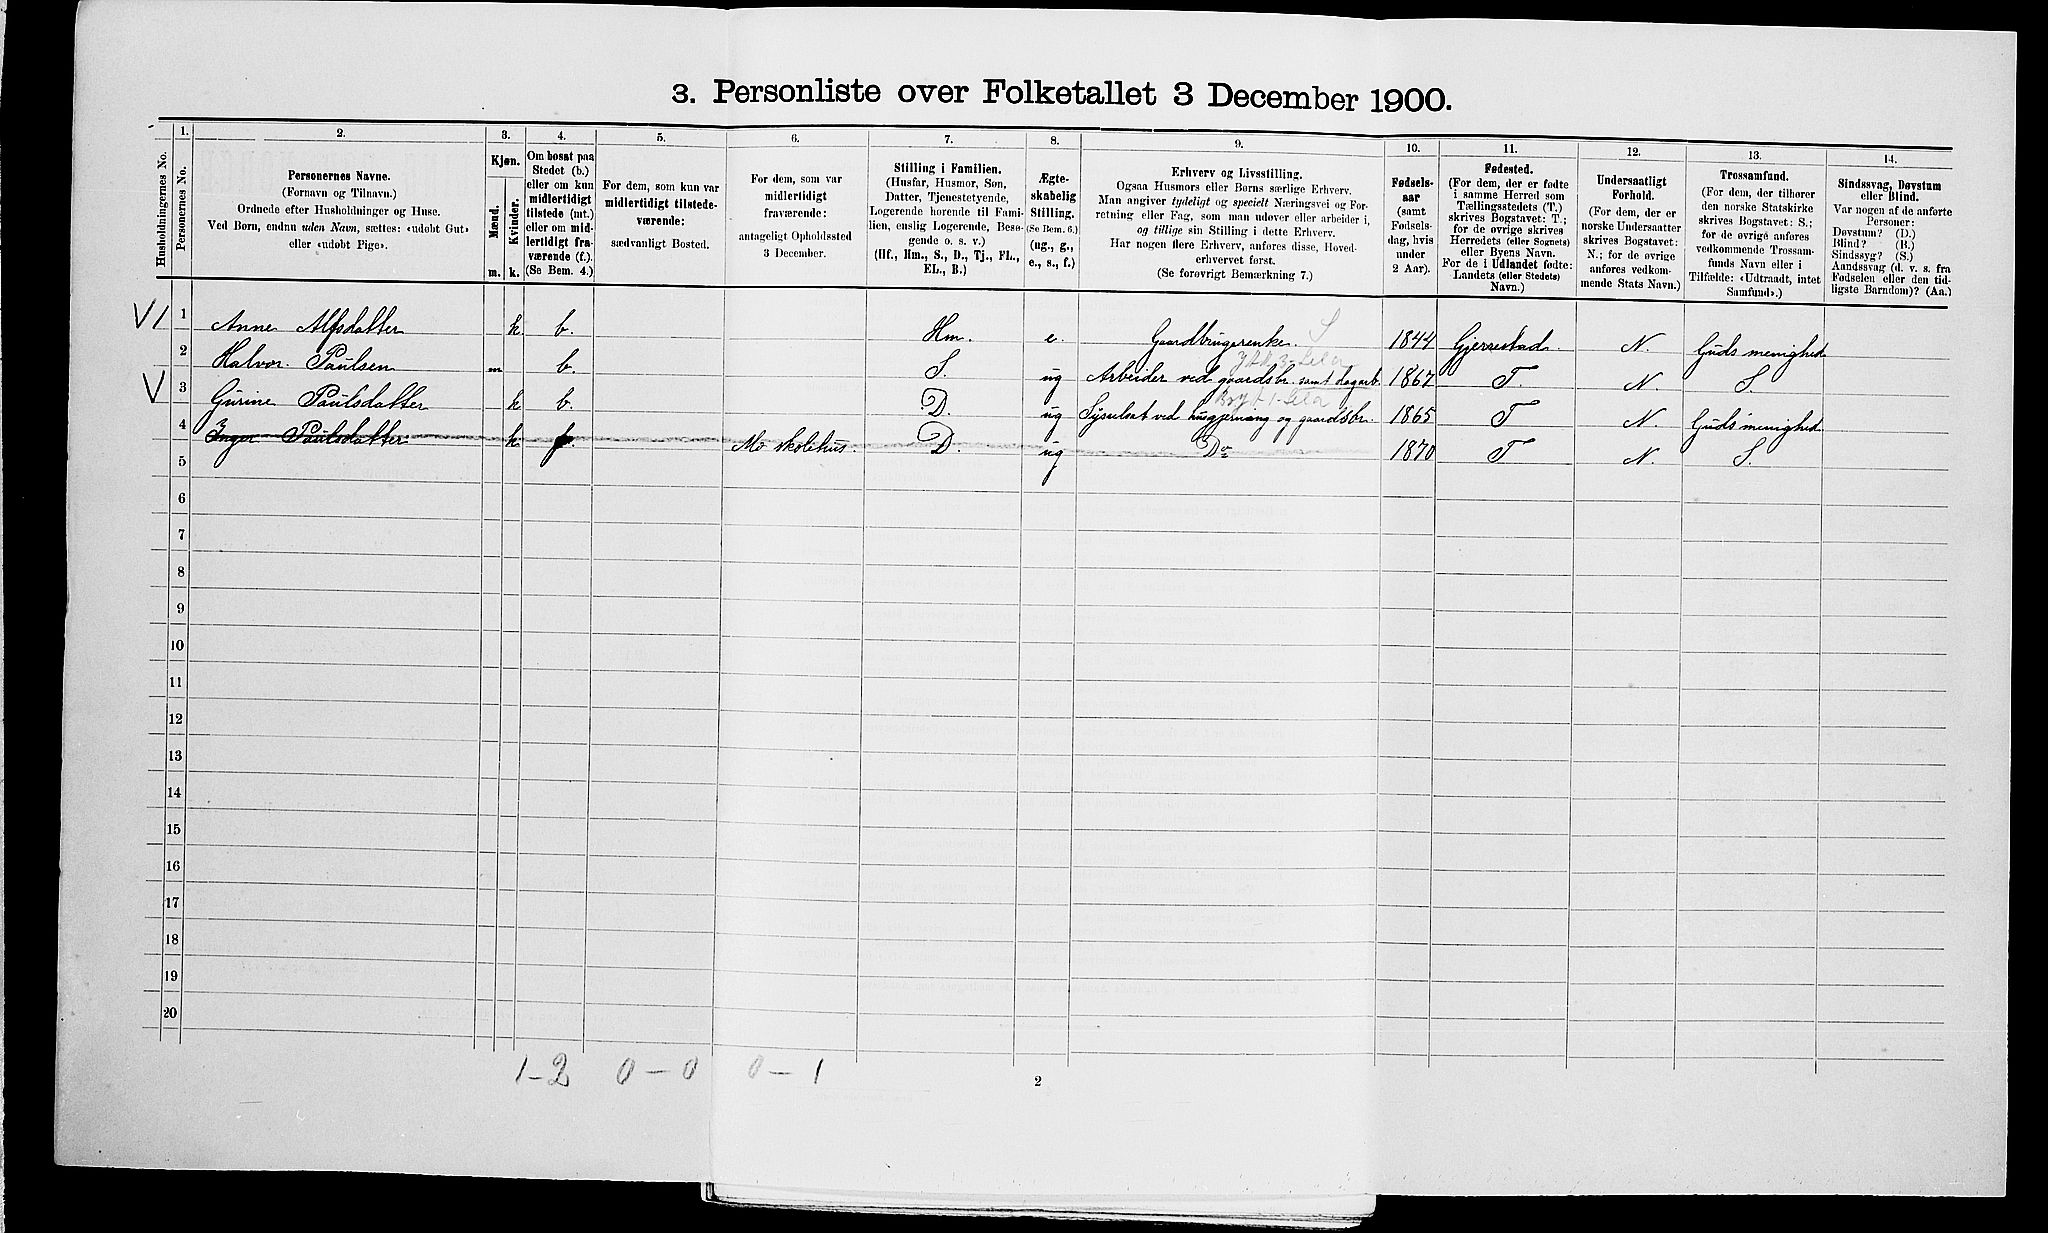 3. Personliste over Folketallet 3 December 1900.
1. 2. 3. 4. 5. 6. 7. 8. 9. 10. 11. 12. 13. 14.
Husholdningernes No.
Personernes No.
Personernes Navne.
(Fornavn og Tilnavn.)
Ordnede efter Husholdninger og Huse.
Ved Børn, endnu uden Navn, sættes: «udobt Gut»
eller «udobt Pige».
Kjøn.
Mænd.
Kvinder.
m. k.
Om bosat paa
Stedet (b.)
eller om kun
midlertidigt
tilstede (mt.)
eller om mid-
lertidigt fra-
værende (f.).
(Se Bem. 4.)
For dem, som kun var
midlertidigt tilstede-
værende:
sædvanligt Bosted.
For dem, som var
midlertidigt
fraværende:
antageligt Opholdssted
3 December.
Stilling i Familien.
(Husfar, Husmor, Søn,
Datter, Tjenestetyende,
Logerende hørende til Fami-
lien, enslig Logerende, Besø-
gende o. s. v.)
(Hf., Hm., S., D., Tj., FL.,
EL., B.)
Ægte-
skabelig
Stilling.
(Se Bem. 6.)
(ug., g.,
e., s., f.)
Erhverv og Livsstilling.
Ogsaa Husmors eller Børns særlige Erhverv.
Man angiver tydeligt og specielt Næringsvei og For-
retning eller Fag, som man udøver eller arbeider i,
og tillige sin Stilling i dette Erhverv.
Har nogen flere Erhverv, anføres disse, Hoved-
erhvervet først.
(Se forøvrigt Bemærkning 7.)
Fødsels-
aar
(samt
Fødsels-
dag, hvis
under
2 Aar).
Fødested.
(For dem, der er fødte
i samme Herred som
Tællingsstedets (T.)
skrives Bogstavet: T.;
for de øvrige skrives
Herredets (eller Sognets)
eller Byens Navn.
For de i Udlandet fødte:
Landets (eller Stedets)
Navn.)
Undersaatligt
Forhold.
(For dem, der er
norske Undersaatter
skrives Bogstavet:
N.; for de øvrige
anføres vedkom-
mende Stats Navn.)
Trossamfund.
(For dem, der tilhører
den norske Statskirke
skrives Bogstavet: S.;
for de øvrige anføres
vedkommende Trossam-
funds Navn eller i
Tilfælde: «Udtraadt, intet
Samfund».)
Sindssvag, Døvstum
eller Blind.
Var nogen af de anførte
Personer:
Døvstum? (D.)
Blind? (B.)
Sindssyg? (S.)
Aandssvag (d. v. s. fra
Fødselen eller den tid-
ligste Barndom)? (Aa.)
V 1 1 Anne Alfsdatter k b. Hm. e. Gaardbrugerenke. S 1844 Gjerrestad. N. Guds menighed
2 Halvor Paulsen m b. S. ug Arbeider ved gaardsbr. samt dagarb. 1867 T. N. S.
V 3 Gurine Paulsdatter k b. D. ug Sysselsat ved husgjerning og gaardsbr. 1865 T N. Guds menighed
4 Inger Paulsdatter k f. Mo skolehus. D. ug Do 1870 T N. S.
5
6
7
8
9
10
11
12
13
14
15
16
17
18
19
20
1-2 0-0 0-1
2